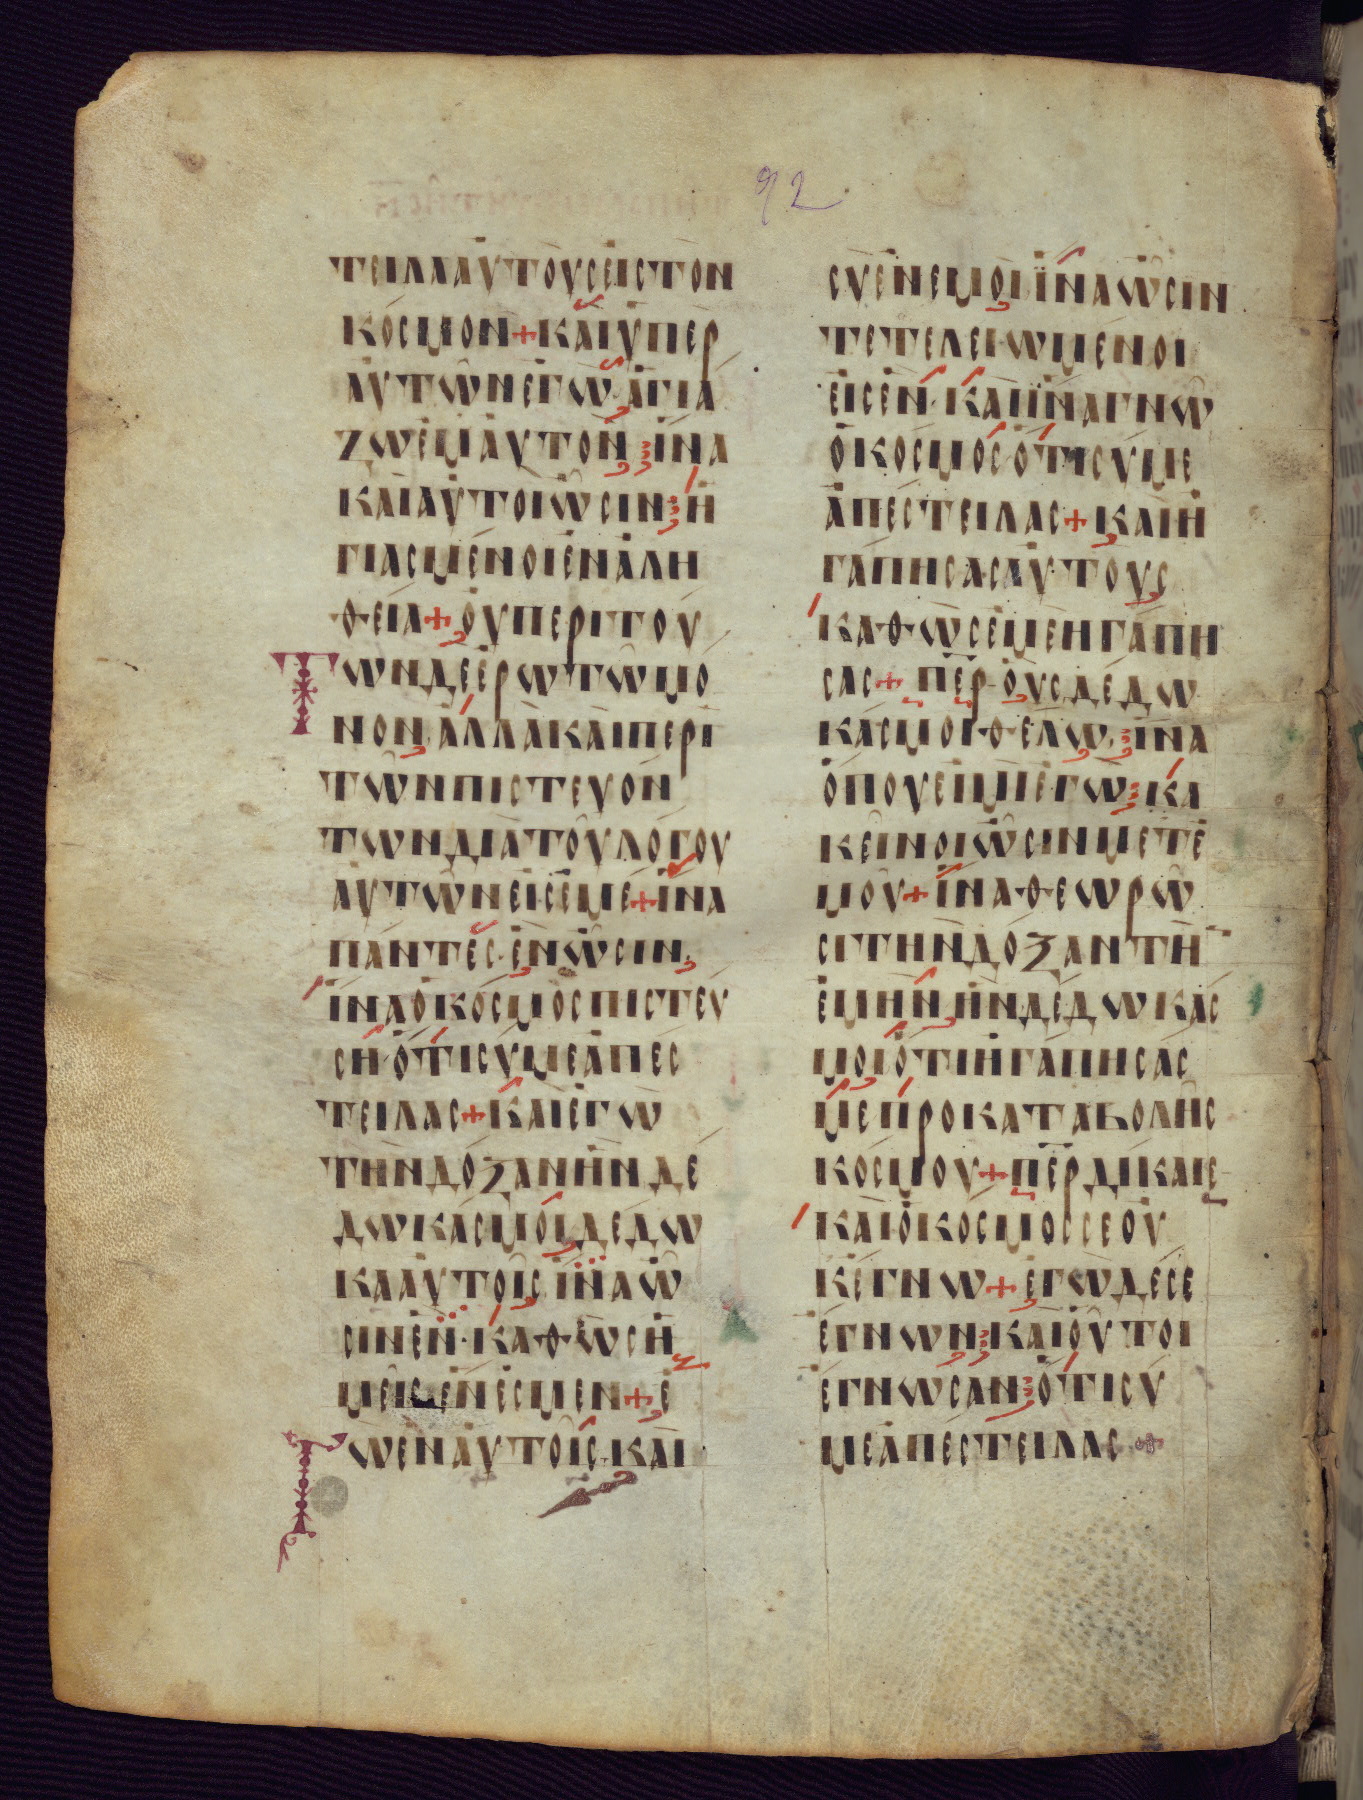 92
ΤΕΙΛΛΑΥΤΟΥΣΕΙΣΤΟΝ
ΚΟΣΜΟΝ+ΚΑΙΥΠΕΡ
ΑΥΤΩΝΕΓΩ·ΑΓΙΑ
ΖΩΕΜΑΥΤΟΝ ΙΝΑ
ΚΑΙΑΥΤΟΙΩΣΙΝ Η
ΓΙΑΣΜΕΝΟΙΕΝΑΛΗ
ΘΕΙΑ+ΟΥΠΕΡΙΤΟΥ
ΤΩΝΔΕΕΡΩΤΩΜΟ
ΝΟΝ ΑΛΛΑΚΑΙΠΕΡΙ
ΤΩΝΠΙΣΤΕΥΟΝ
ΤΩΝΔΙΑΤΟΥΛΟΓΟΥ
ΑΥΤΩΝΕΙΣΕΜΕ+ΙΝΑ
ΠΑΝΤΕΣ·ΕΝΩΣΙΝ·
ΙΝΑΟΚΟΣΜΟΣΠΙΣΤΕΥ
ΣΗ·ΟΤΙΣΥΜΕΑΠΕΣ
ΤΕΙΛΑΣ+ΚΑΙΕΓΩ
ΤΗΝΔΟΞΑΝΗΝΔΕ
ΔΩΚΑΣΜΟΙΔΕΔΩ
ΚΑΑΥΤΟΙΣ ΙΝΑΩ
ΣΙΝΕΝ·ΚΑΘΩΣΗ
ΜΕΙΣΕΝΕΣΜΕΝ+Ε
ΓΩΕΝΑΥΤΟΙΣ·ΚΑΙ
ΣΥΕΝΕΜΟΙ ΙΝΑΩΣΙΝ
ΤΕΤΕΛΕΙΩΜΕΝΟΙ
ΕΙΣΕΝ·ΚΑΙΙΝΑΓΝΩ
ΟΚΟΣΜΟΣΟΤΙΣΥΜΕ
ΑΠΕΣΤΕΙΛΑΣ+ΚΑΙΗ
ΓΑΠΗΣΑΣΑΥΤΟΥΣ
ΚΑΘΩΣΕΜΕΗΓΑΠΗ
ΣΑΣ+ΠΕΡ·ΟΥΣΔΕΔΩ
ΚΑΣΜΟΙ·ΘΕΛΩ ΙΝΑ
ΟΠΟΥΕΙΜΙΕΓΩ ΚΑ
ΚΕΙΝΟΙΩΣΙΝΜΕΤΕ
ΜΟΥ+ΙΝΑΘΕΩΡΩ
ΣΙΤΗΝΔΟΞΑΝΤΗ
ΕΜΗΝ ΗΝΔΕΔΩΚΑΣ
ΜΟΙΟΤΙΗΓΑΠΗΣΑΣ
ΜΕΠΡΟΚΑΤΑΒΟΛΗΣ
ΚΟΣΜΟΥ+ΠΕΡΔΙΚΑΙΕ
ΚΑΙΟΚΟΣΜΟΣΣΕΟΥ
ΚΕΓΝΩ+ΕΓΩΔΕΣΕ
ΕΓΝΩΝ ΚΑΙΟΥΤΟΙ
ΕΓΝΩΣΑΝ ΟΤΙΣΥ
ΜΕΑΠΕΣΤΕΙΛΑΣ